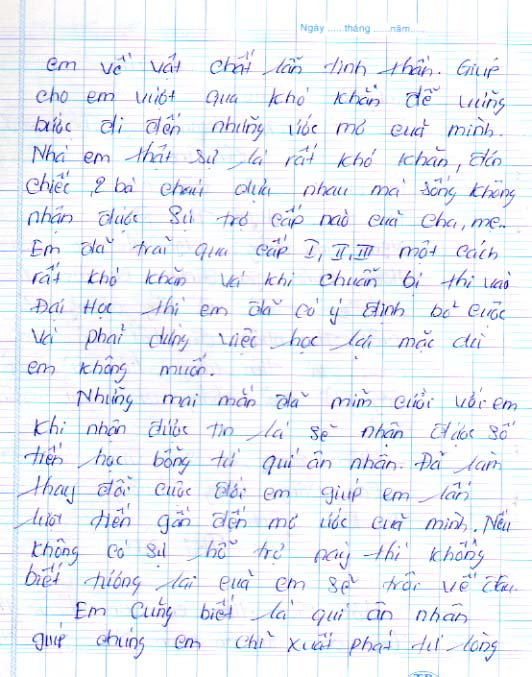 Ngày ..... tháng ..... năm.....
em về vất chất lẫn tinh thần. Giúp
cho em vượt qua khó khăn để vững
bước đi đến những ước mơ cuả mình.
Nhà em thật sự là rất khó khăn, đơn
chiếc, 2 bà cháu dựa nhau mà sống không
nhận được sự trợ cấp nào cuả cha, mẹ.
Em đã trãi qua cấp I, II, III một cách
rất khó khăn và khi chuẩn bị thi vào
Đại Học thì em đã có ý định bỏ cuộc
và phải dừng việc học lại mặc dù
em không muốn.
Nhưng mai mắn đã mĩm cười với em
khi nhận được tin là sẽ nhận được số
tiền học bổng từ quí ân nhân. Đã làm
thay đổi cuộc đời em giúp em lần
lượt tiến gần đến mơ ước cuả mình. Nếu
không có sự hỗ trợ này thì không
biết tương lai cuả em sẽ trôi về đâu.
Em cũng biết là quí ân nhân
giúp chúng em chỉ xuất phát từ lòng